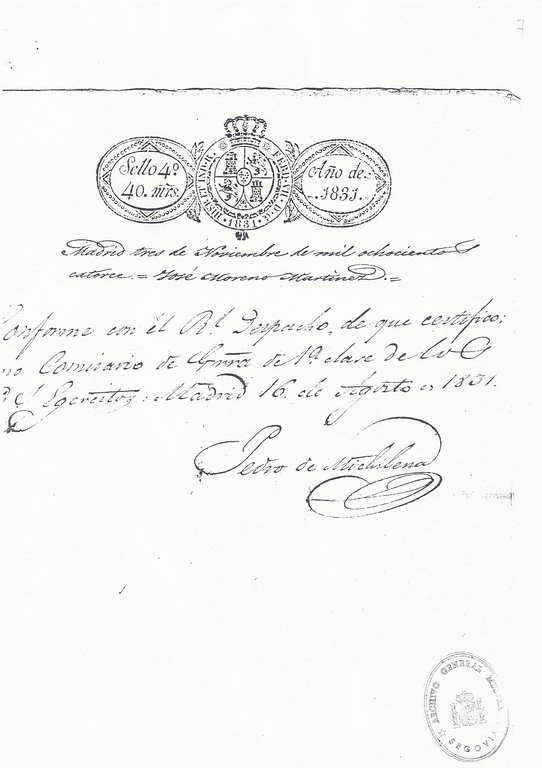 7
Sello 4º
40. mrs.
HISP. ET IND. R. FERD. VII. D. G. 1831.
Año de
1831.
Madrid tres de Noviembre de mil ochociento
catorce. = José Moreno Martinez. =
Conforme con el Rl. Despacho, de que certifico;
Comisario de Grra de 1ª clase de los
Egercitos: Madrid 16 de Agosto de 1831.
Pedro de Michilena
ARCHIVO GENERAL MILITAR
SEGOVIA